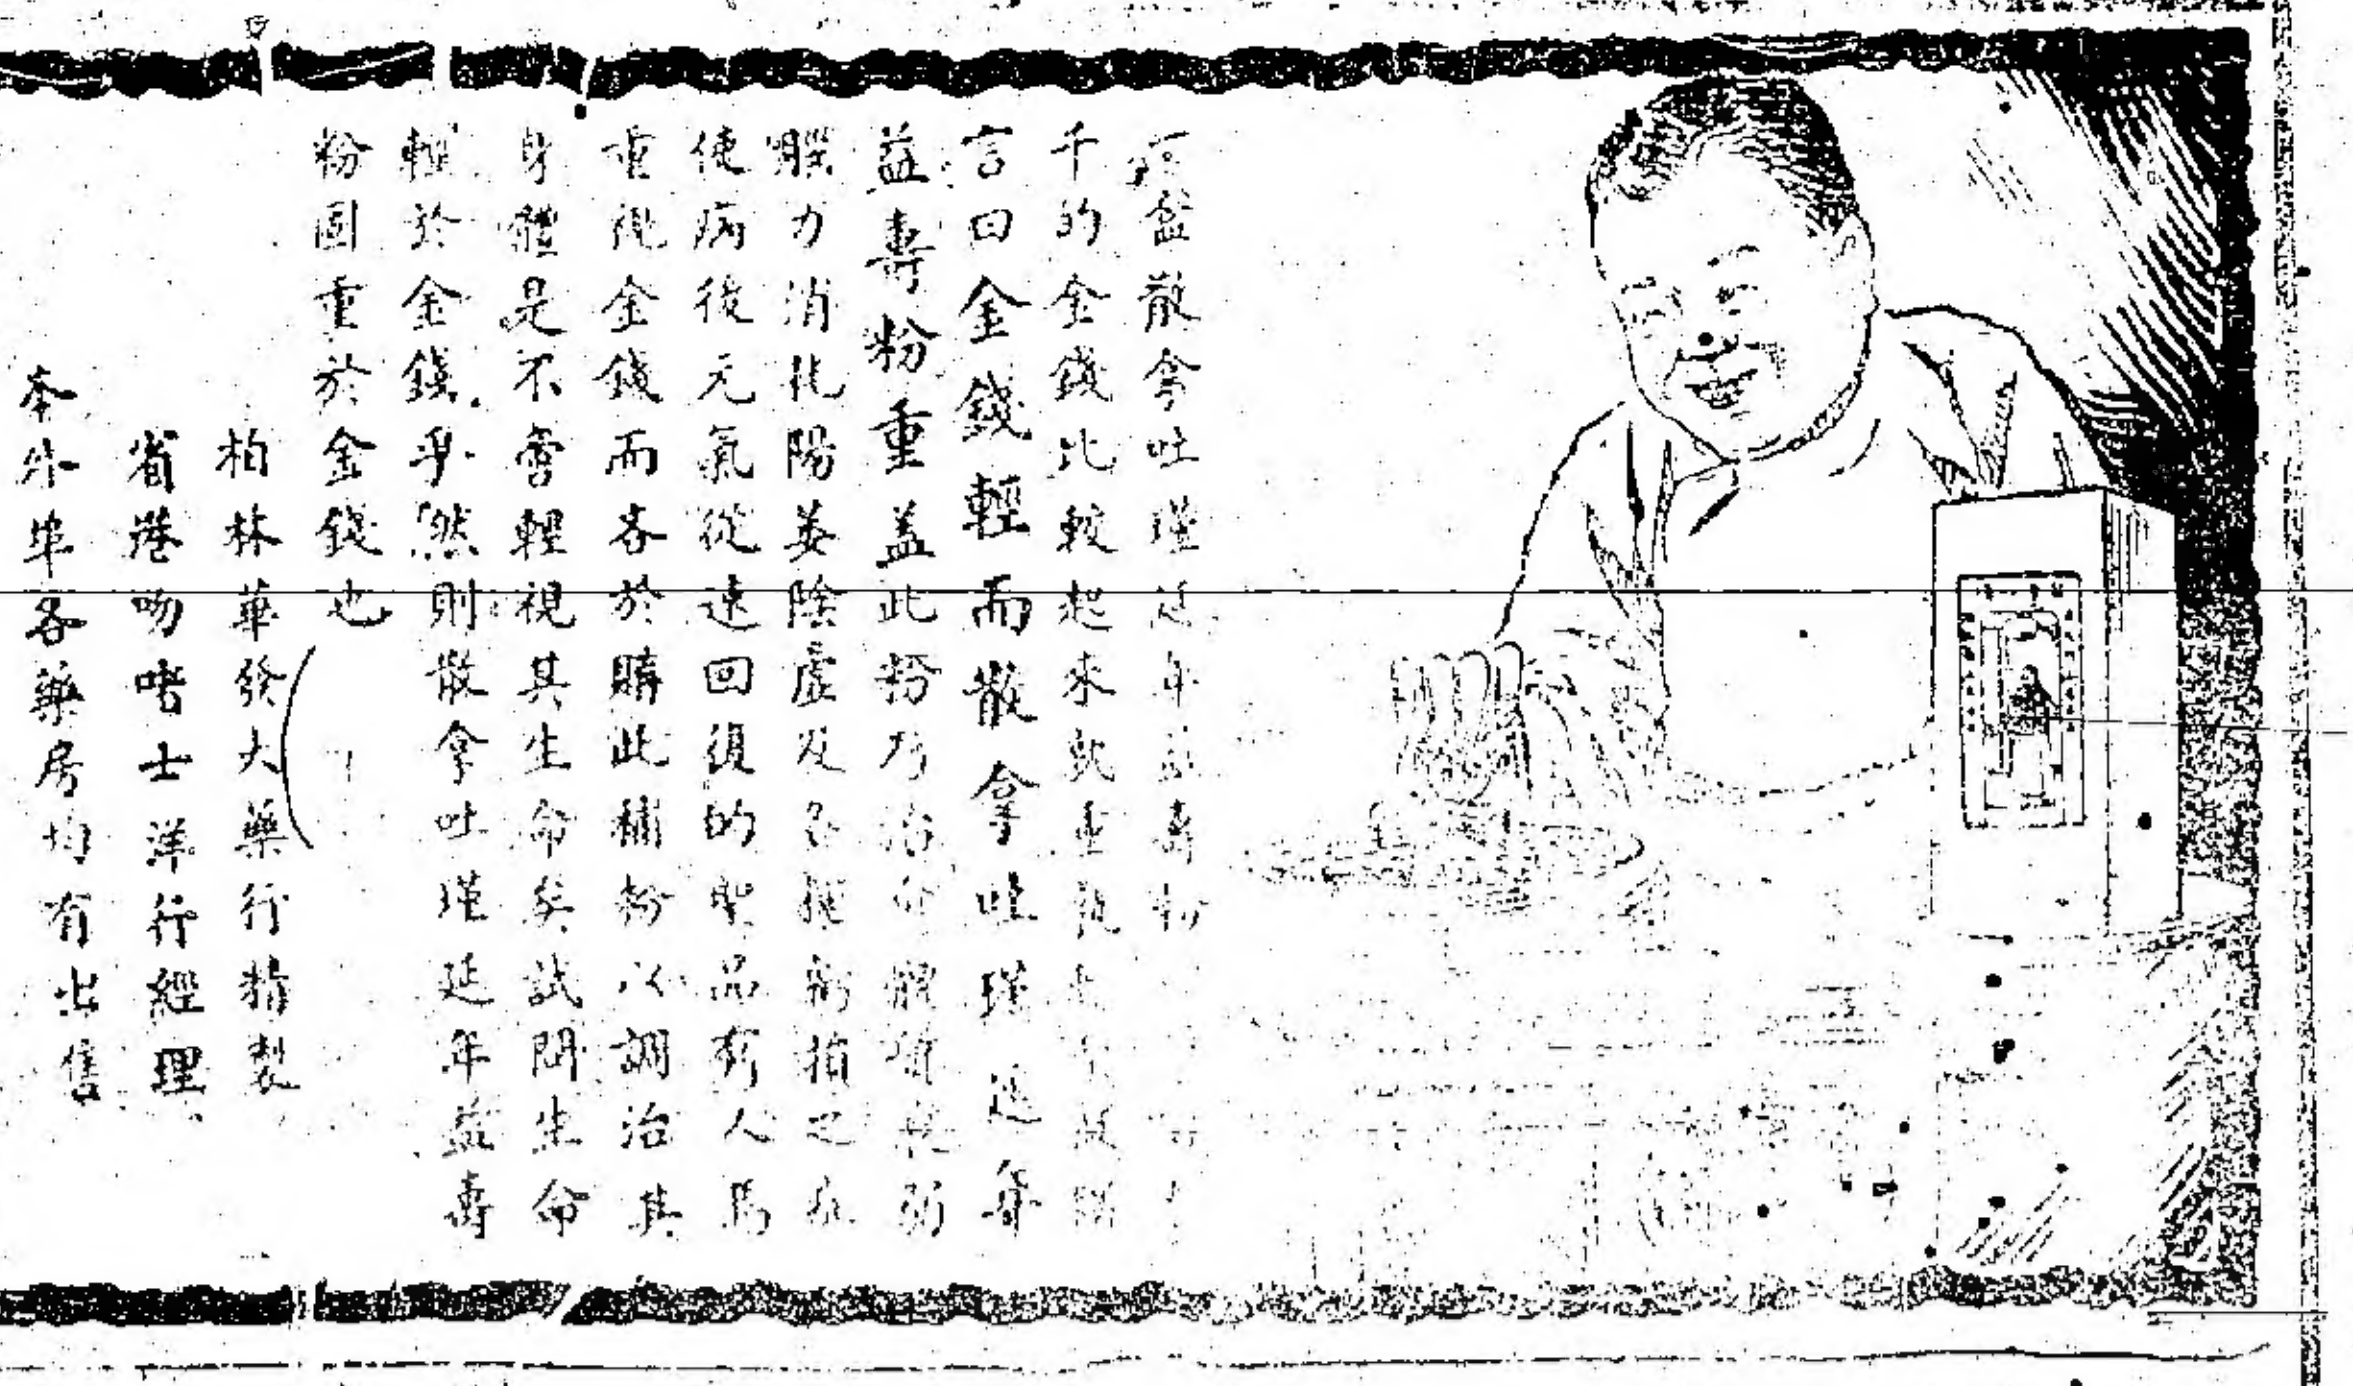 盆散拿吐瑾延年益壽粉
千的金錢比較起來
言曰金錢輕而散拿吐瑾延年
益壽粉重蓋此粉乃治
腦力消化陽萎陰虛及損之症
使病後元氣從速回復的聖品有人焉
重視金錢而吝於購此補粉以調治其
身體是不啻輕視其生命矣試問生命
輕於金錢乎然則散拿吐瑾延年益壽
粉固重於金錢也
柏林華發大藥行精製
省港吻喈士洋行經理
本外埠各藥房均有出售